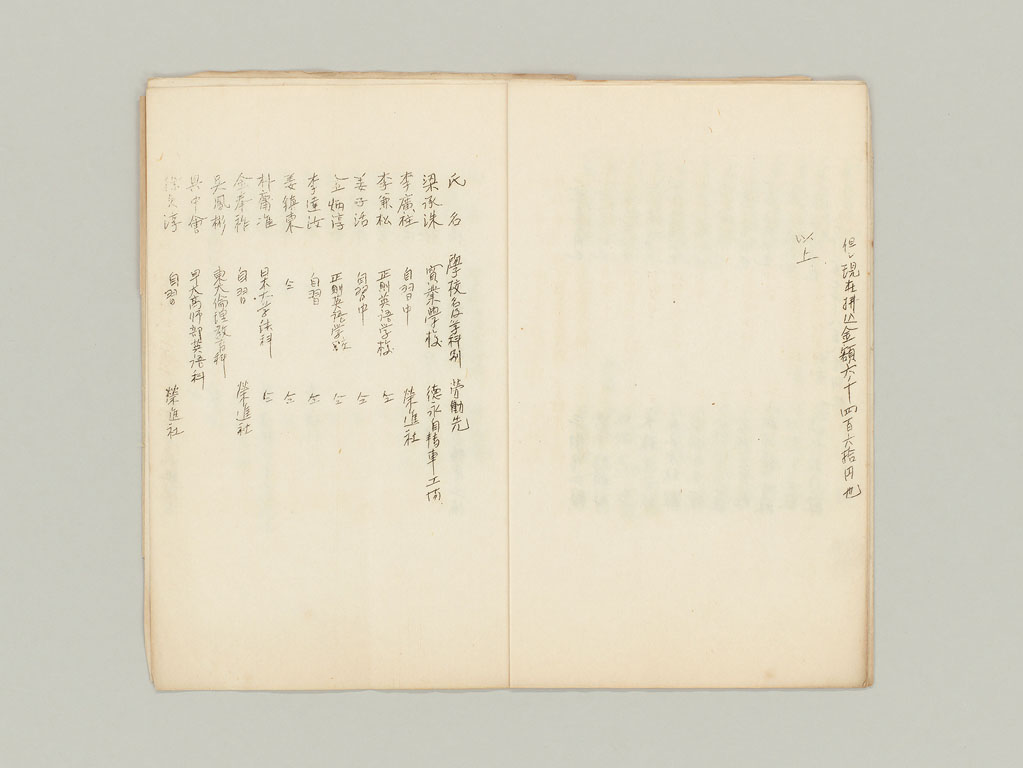 但シ現在拂込金額六千四百六拾円也
以上
氏名 學校名及学科別 労働先
梁承洙 實業學校 德永自轉車工場
李廣柱 自習中 榮進社
李兼松 正則英語学校 仝
姜子活 自習中 仝
金炳淳 正則英語学校 仝
李達汝 自習 仝
姜鎮東 仝 仝
朴需准 日本大学法科 仝
金奉祚 自習 榮進社
吳鳳彬 東大倫理教育科
具中會 早大高師部英語科
淳 自習 榮進社